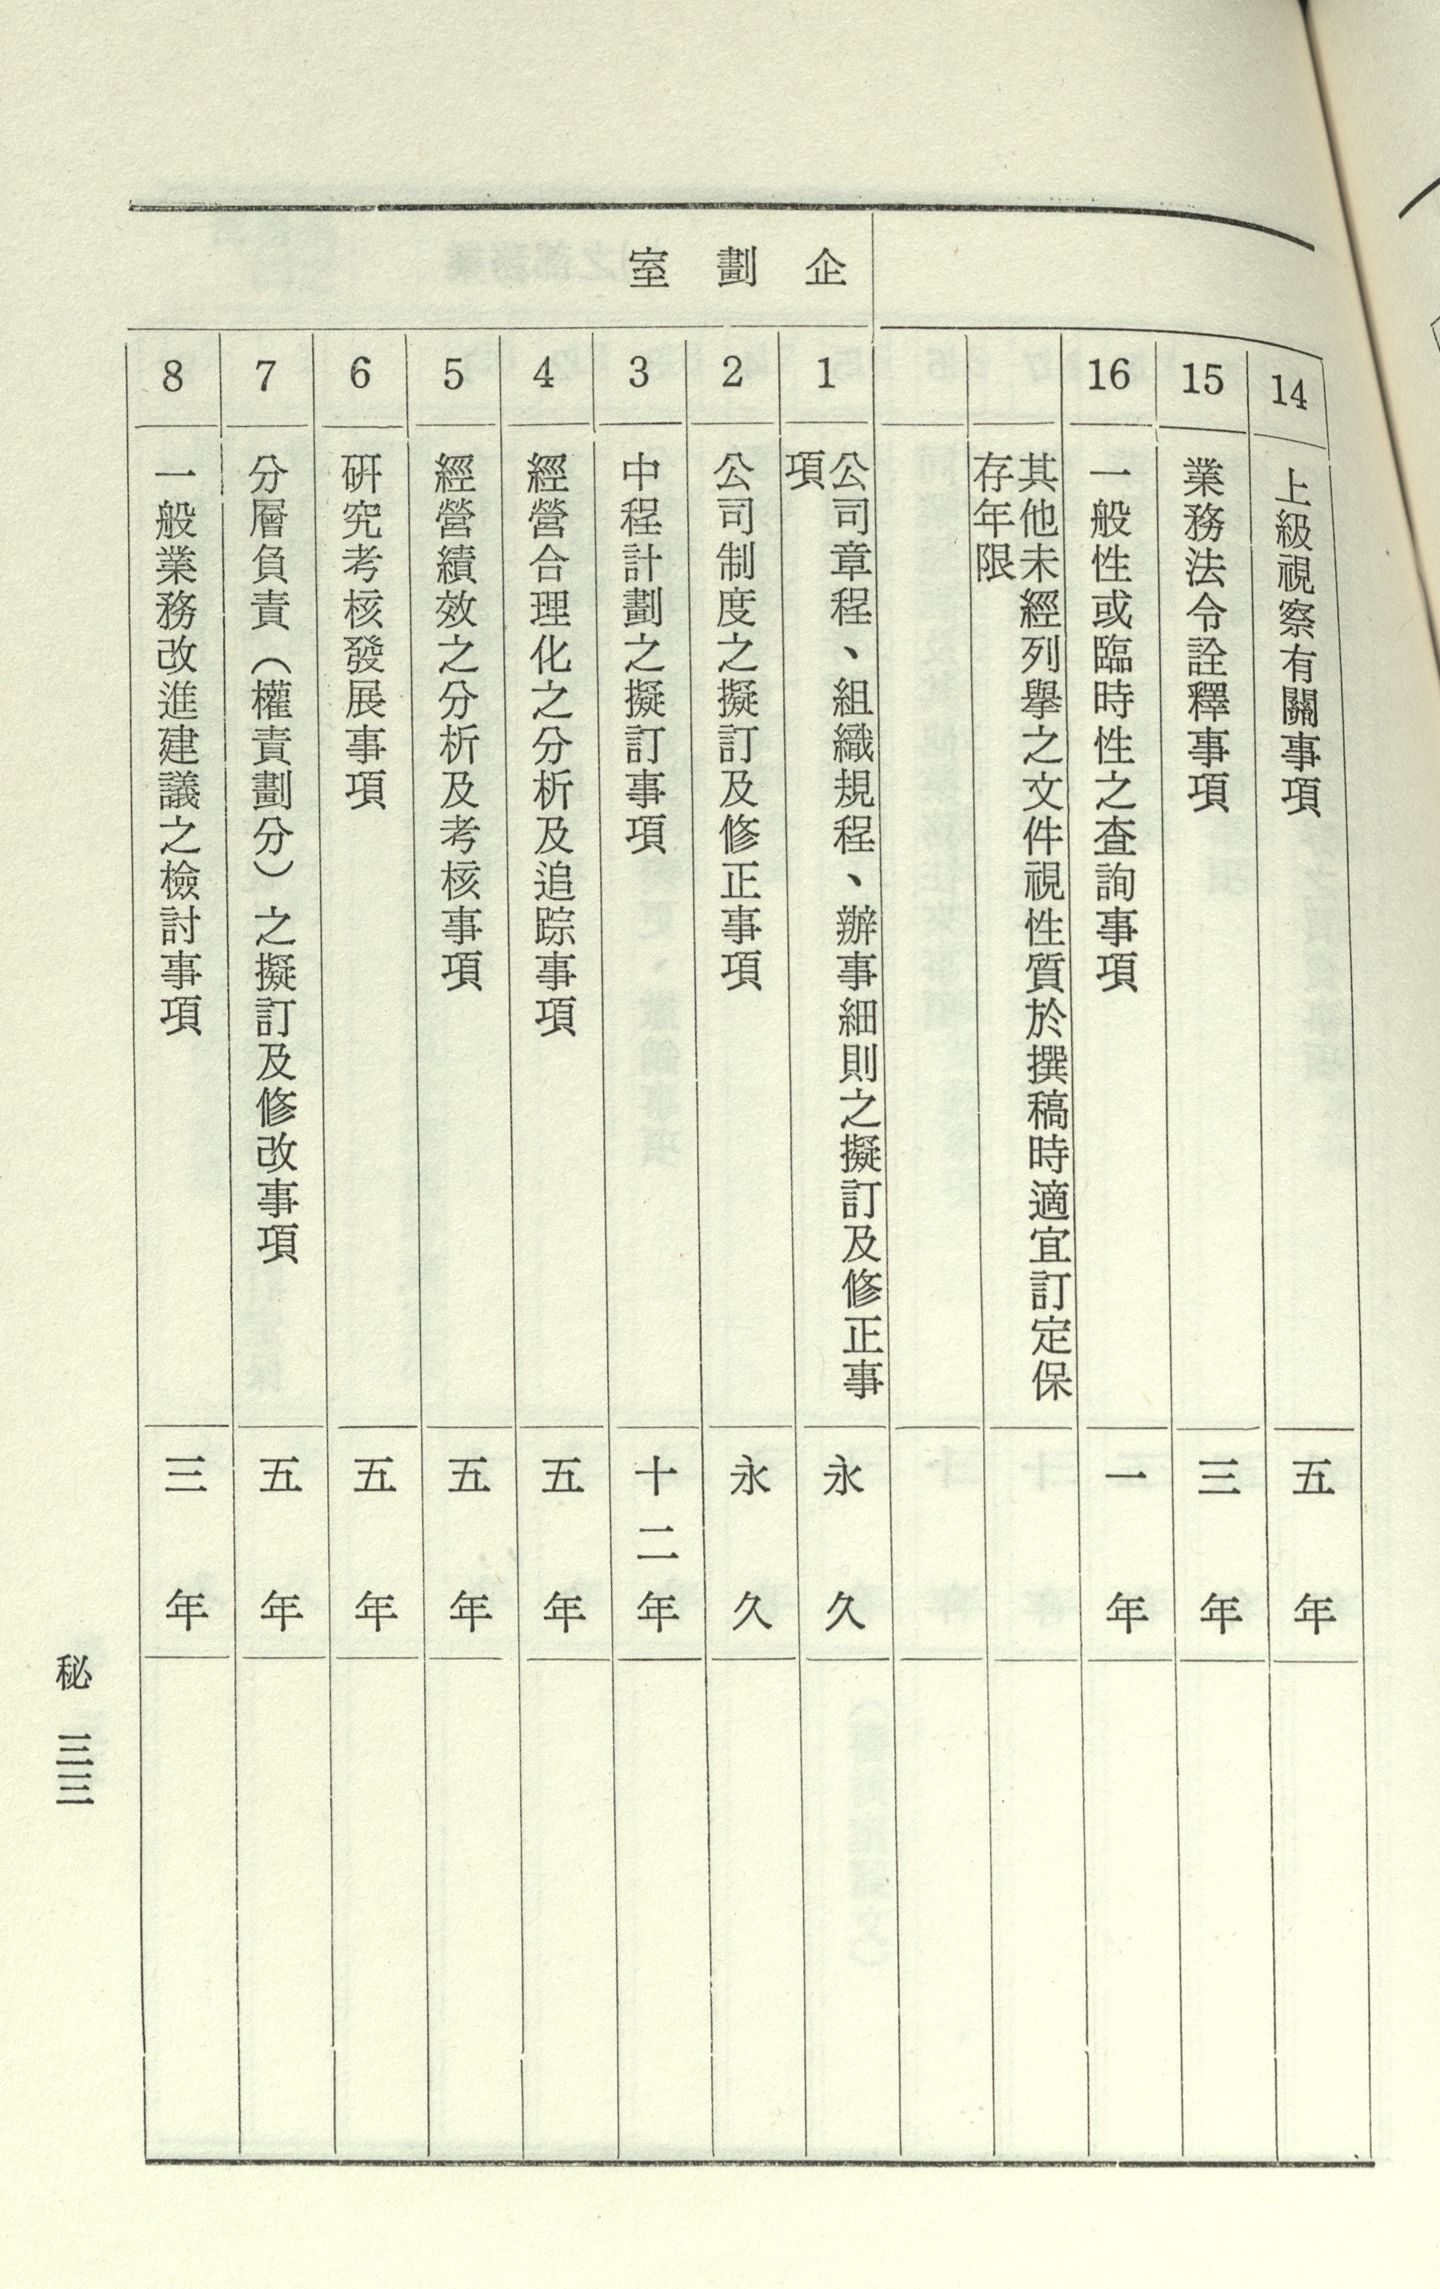 14
上級視察有關事項
五年
15
業務法令詮釋事項
三年
16
一般性或臨時性之查詢事項
一年
其他未經列舉之文件視性質於撰稿時適宜訂定保
存年限
企劃室
1
公司章程、組織規程、辦事細則之擬訂及修正事
項
永久
2
公司制度之擬訂及修正事項
永久
3
中程計劃之擬訂事項
十二年
4
經營合理化之分析及追踪事項
五年
5
經營績效之分析及考核事項
五年
6
研究考核發展事項
五年
7
分層負責（權責劃分）之擬訂及修改事項
五年
8
一般業務改進建議之檢討事項
三年
秘 三三